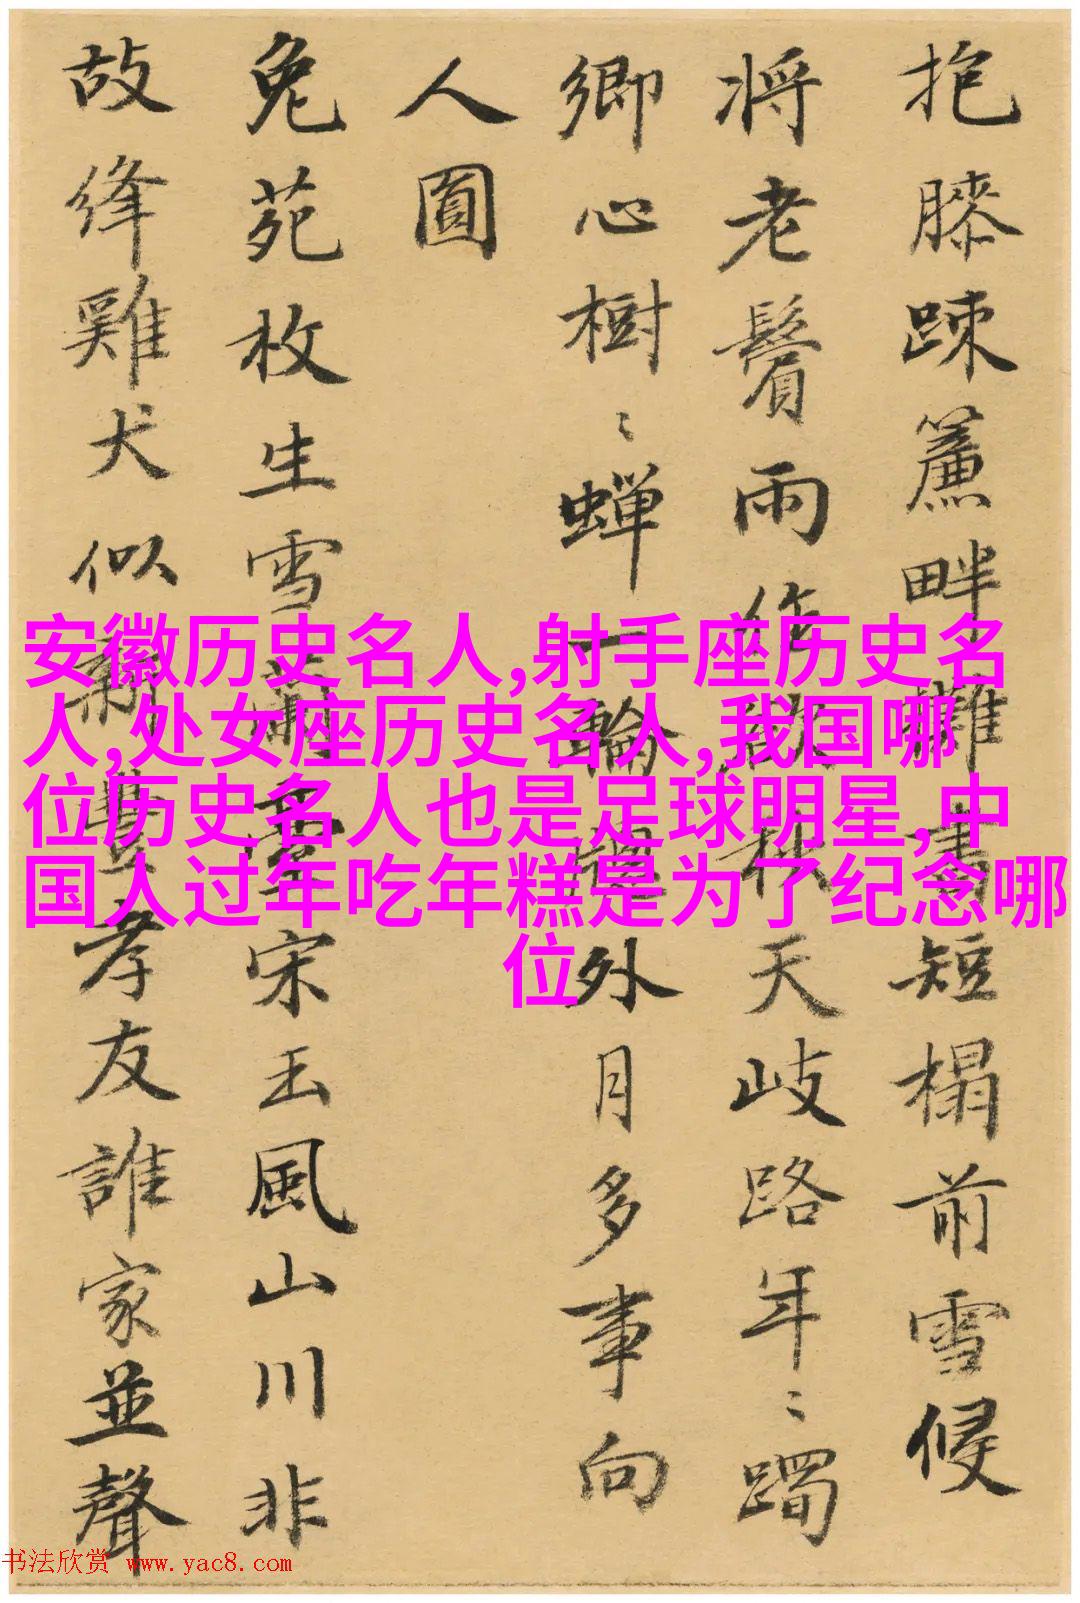 抱膝踈簾畔攤書短榻前雪侵
将老鬢雨作欲秋天岐路年〻躅
卿心樹〻蝉一輪牕外月多事向
人圓
兔苑枚生雪蘭臺宋玉風山川非
故絳雞犬似新豐孝友誰家並聲
安徽历史名人,射手座历史名
人,处女座历史名人,我国哪
位历史名人也是足球明星,中
国人过年吃年糕是为了纪念哪
位
书法欣赏 www.yac8.com